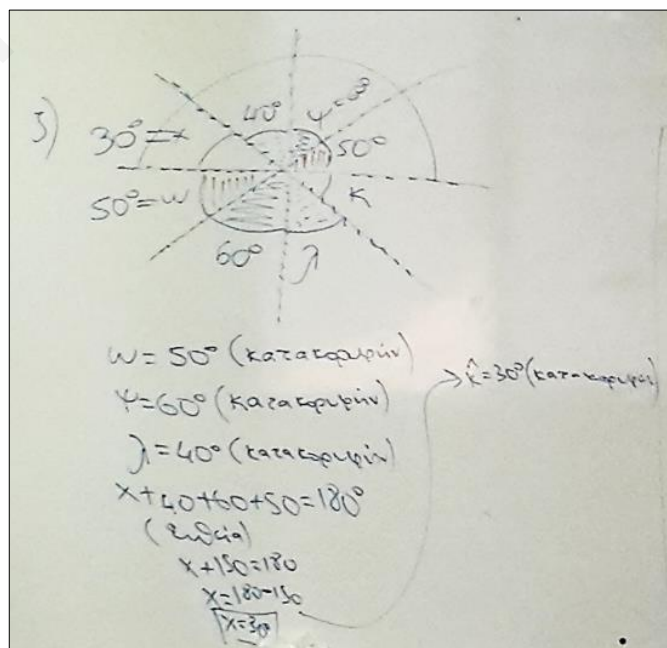 3)
40°
30°=x
50°
50°=w
κ
60°
λ
w=50° (κατακορυφήν)
ψ=60° (κατακορυφήν)
λ=40° (κατακορυφήν)
x+40+60+50=180°
(ευθεία)
x+150=180
x=180-150
x=30
κ̂=30° (κατακορυφήν)